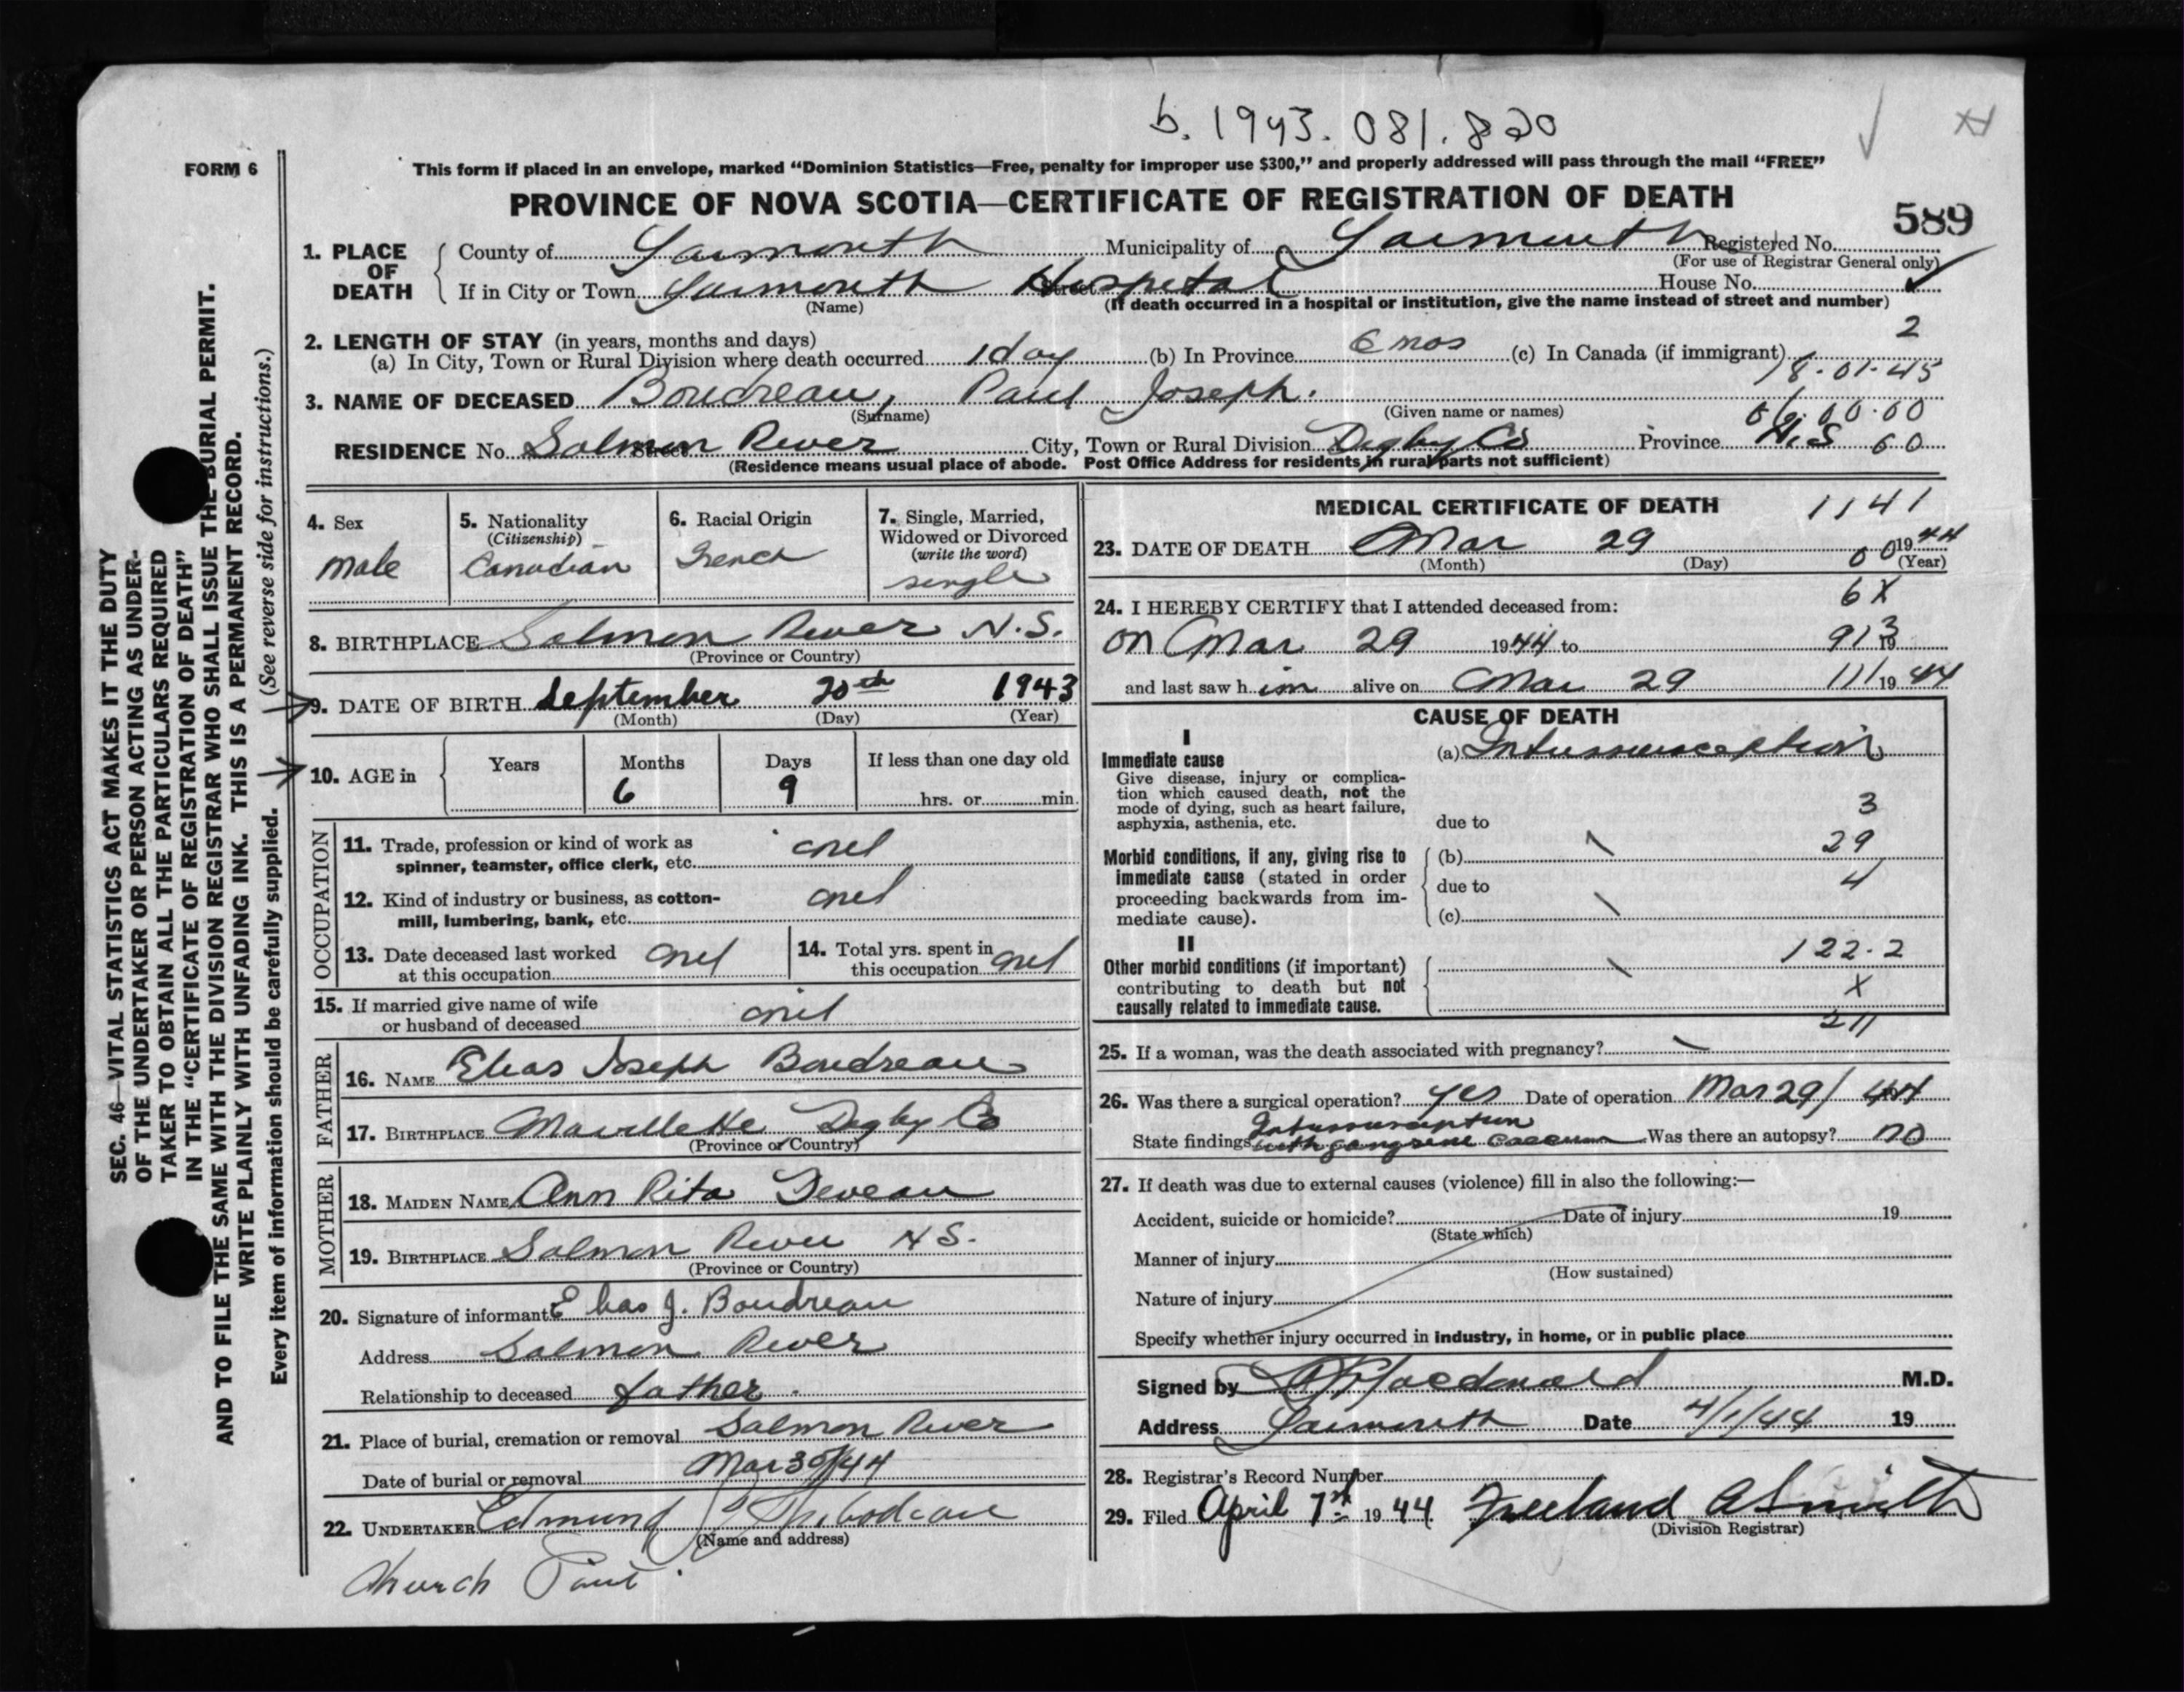 b. 1943. 081. 820
FORM 6
This form if placed in an envelope, marked "Dominion Statistics—Free, penalty for improper use $300," and properly addressed will pass through the mail "FREE"
PROVINCE OF NOVA SCOTIA—CERTIFICATE OF REGISTRATION OF DEATH
589
1. PLACE OF DEATH
County of Yarmouth Municipality of Yarmouth Registered No.
(For use of Registrar General only)
If in City or Town Yarmouth Hospital Street House No.
(Name) (If death occurred in a hospital or institution, give the name instead of street and number)
2. LENGTH OF STAY (in years, months and days) 2
(a) In City, Town or Rural Division where death occurred 1 day (b) In Province 6 mos (c) In Canada (if immigrant)
18.01.45
3. NAME OF DECEASED Boudreau, Paul Joseph.
(Surname) (Given name or names)
RESIDENCE No. Salmon River Street City, Town or Rural Division Digby Co Province N.S 60
(Residence means usual place of abode. Post Office Address for residents in rural parts not sufficient)
4. Sex
male
5. Nationality
(Citizenship)
Canadian
6. Racial Origin
French
7. Single, Married, Widowed or Divorced
(write the word)
single
8. BIRTHPLACE Salmon River N.S.
(Province or Country)
9. DATE OF BIRTH September 20th 1943
(Month) (Day) (Year)
10. AGE in Years Months Days If less than one day old
6 9 hrs. or min.
OCCUPATION
11. Trade, profession or kind of work as
spinner, teamster, office clerk, etc. nil
12. Kind of industry or business, as cotton-
mill, lumbering, bank, etc. nil
13. Date deceased last worked
at this occupation nil
14. Total yrs. spent in
this occupation nil
15. If married give name of wife
or husband of deceased nil
FATHER
16. NAME Elias Joseph Boudreau
17. BIRTHPLACE Mavillette Digby Co
(Province or Country)
MOTHER
18. MAIDEN NAME Ann Rita Deveau
19. BIRTHPLACE Salmon River N S.
(Province or Country)
20. Signature of informant Elias J. Boudreau
Address Salmon River
Relationship to deceased father.
21. Place of burial, cremation or removal Salmon River
Date of burial or removal Mar 30/44
22. UNDERTAKER Edmund Thibodeau
(Name and address)
Church Point.
MEDICAL CERTIFICATE OF DEATH 1141
23. DATE OF DEATH Mar 29 00 1944
(Month) (Day) (Year)
6X
24. I HEREBY CERTIFY that I attended deceased from:
on Mar 29 1944 to 913 19
and last saw him alive on Mar 29 111 1944
CAUSE OF DEATH
I
Immediate cause
Give disease, injury or complica-
tion which caused death, not the
mode of dying, such as heart failure,
asphyxia, asthenia, etc.
(a) Intussusception
3
due to
Morbid conditions, if any, giving rise to
immediate cause (stated in order
proceeding backwards from im-
mediate cause).
(b) 29
due to 4
(c)
II
Other morbid conditions (if important)
contributing to death but not
causally related to immediate cause.
122.2
X
211
25. If a woman, was the death associated with pregnancy?
26. Was there a surgical operation? yes Date of operation Mar 29/44
State findings Intussusception with gangrene caecum Was there an autopsy? no
27. If death was due to external causes (violence) fill in also the following:—
Accident, suicide or homicide? Date of injury 19
(State which)
Manner of injury
(How sustained)
Nature of injury
Specify whether injury occurred in industry, in home, or in public place
Signed by Macdonald M.D.
Address Yarmouth Date 4/1/44 19
28. Registrar's Record Number
29. Filed April 1944 Freeland A Smith
(Division Registrar)
SEC. 46—VITAL STATISTICS ACT MAKES IT THE DUTY
OF THE UNDERTAKER OR PERSON ACTING AS UNDER-
TAKER TO OBTAIN ALL THE PARTICULARS REQUIRED
IN THE "CERTIFICATE OF REGISTRATION OF DEATH"
AND TO FILE THE SAME WITH THE DIVISION REGISTRAR WHO SHALL ISSUE THE BURIAL PERMIT.
WRITE PLAINLY WITH UNFADING INK. THIS IS A PERMANENT RECORD.
Every item of information should be carefully supplied. (See reverse side for instructions.)